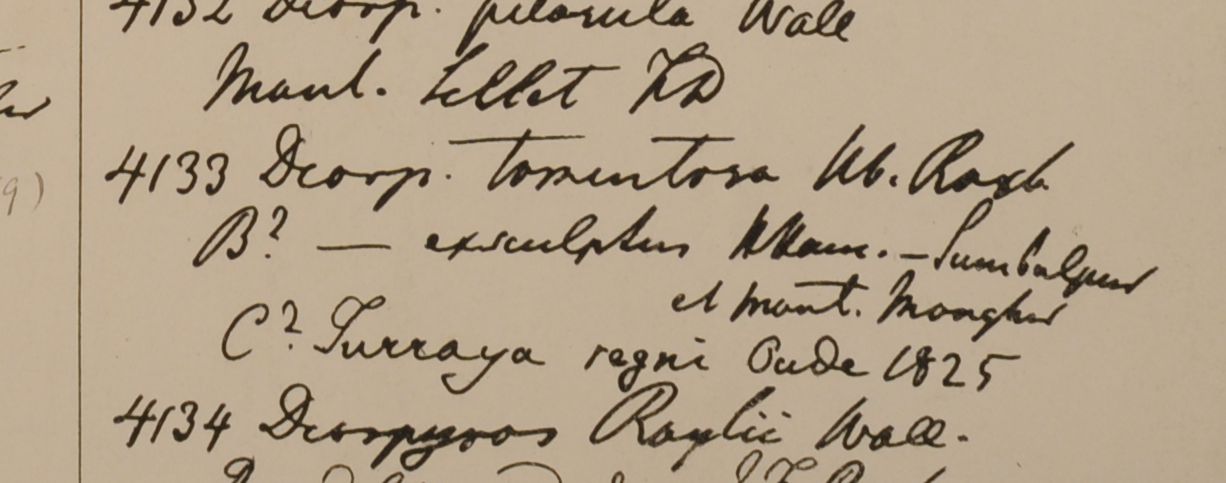 4132 Diosp. pilosula Wall
Mont. Sillet FD
4133 Diosp. tomentosa Hb. Roxb
B? — exsculptus HHam. — Sumbulpur
et mont. Monghir
C? Turraya regni Oude 1825
4134 Diospyros Roylii Wall.